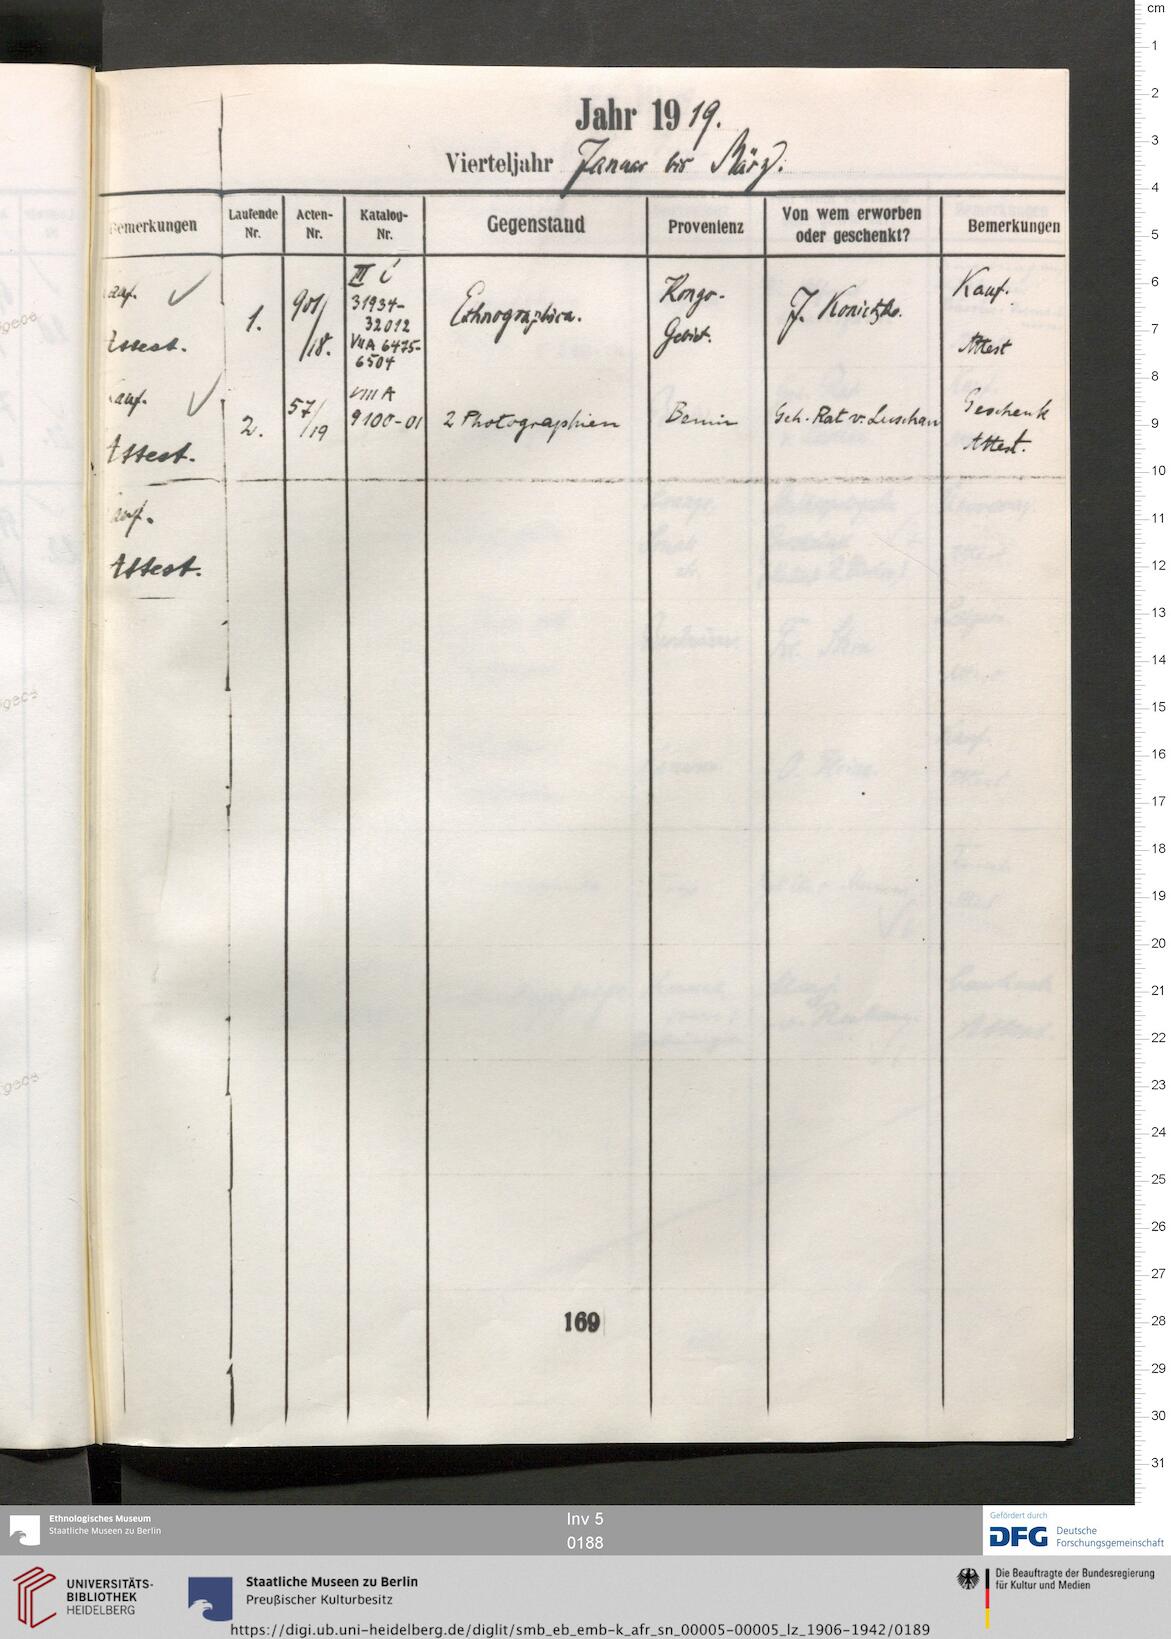 Jahr 1919.
Vierteljahr Januar bis März.
Bemerkungen
Laufende Nr.
Acten-Nr.
Katalog-Nr.
Gegenstand
Provenienz
Von wem erworben oder geschenkt?
Bemerkungen
Kauf.
Attest.
1.
901/18.
III C
31934-
32012
VII A 6475-
6504
Ethnographica.
Kongo-
Gebiet.
J. Konietzko.
Kauf.
Attest
Kauf.
Attest.
2.
57/19
VIII A
9100-01
2 Photographien
Benin
Geh. Rat v. Luschan
Geschenk
Attest.
Kauf.
Attest.
169
cm
1
2
3
4
5
6
7
8
9
10
11
12
13
14
15
16
17
18
19
20
21
22
23
24
25
26
27
28
29
30
31
Ethnologisches Museum
Staatliche Museen zu Berlin
Inv 5
0188
Gefördert durch
DFG Deutsche
Forschungsgemeinschaft
UNIVERSITÄTS-
BIBLIOTHEK
HEIDELBERG
Staatliche Museen zu Berlin
Preußischer Kulturbesitz
Die Beauftragte der Bundesregierung
für Kultur und Medien
https://digi.ub.uni-heidelberg.de/diglit/smb_eb_emb-k_afr_sn_00005-00005_lz_1906-1942/0189